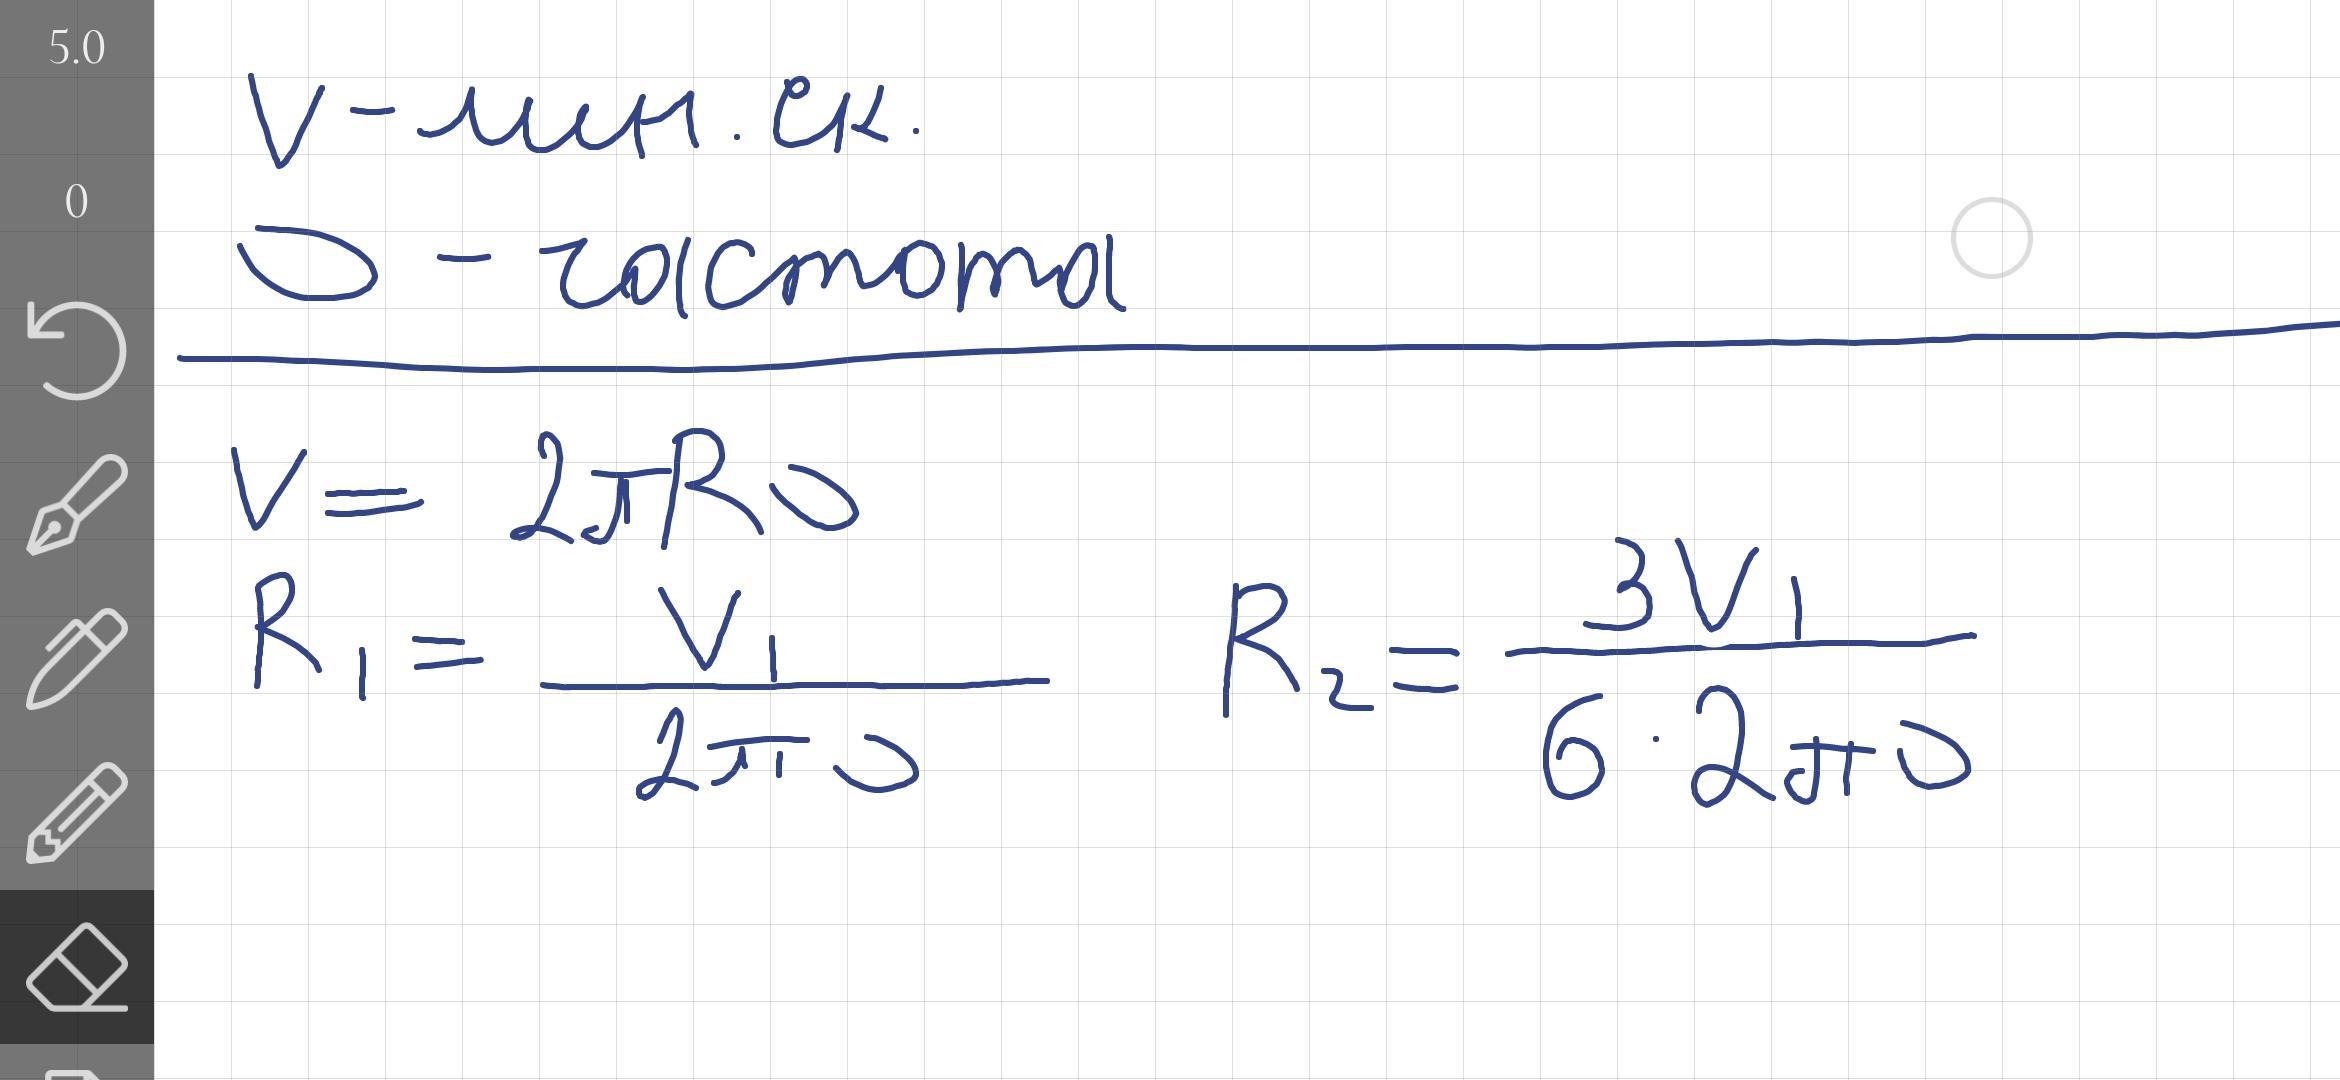 5.0
0
V - лин. ск.
υ - частота
V = 2πRυ
R₁ = V₁ / 2πυ
R₂ = 3V₁ / 6 · 2πυ